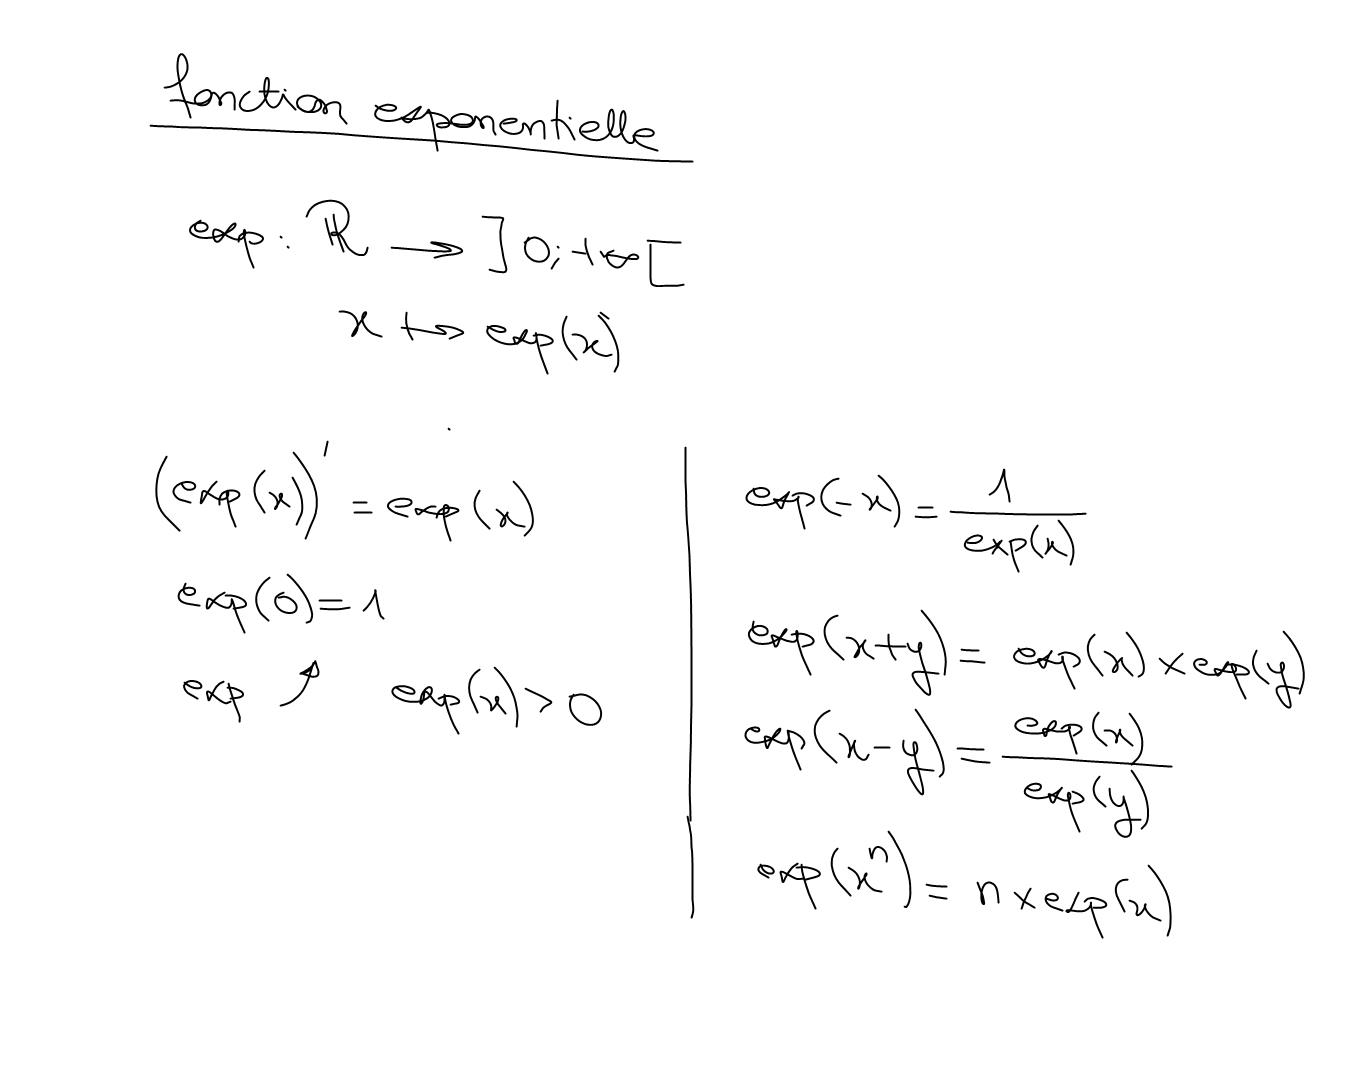 fonction exponentielle
exp : ℝ → ]0; +∞[
x ↦ exp(x)
(exp(x))' = exp(x)
exp(0) = 1
exp ↗ exp(x) > 0
exp(-x) = 1/exp(x)
exp(x+y) = exp(x) × exp(y)
exp(x-y) = exp(x)/exp(y)
exp(xⁿ) = n × exp(x)